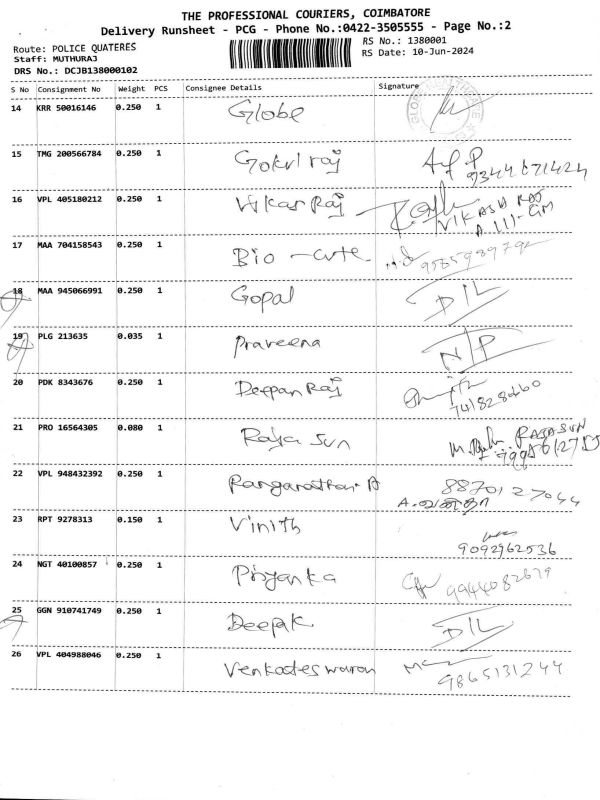 THE PROFESSIONAL COURIERS, COIMBATORE
Delivery Runsheet - PCG - Phone No.:0422-3505555 - Page No.:2
Route: POLICE QUATERES
Staff: MUTHURAJ
DRS No.: DCJB138000102
RS No.: 1380001
RS Date: 10-Jun-2024
S No Consignment No Weight PCS Consignee Details Signature
14 KRR 50016146 0.250 1 Globe
15 TMG 200566784 0.250 1 Gokul raj
16 VPL 405180212 0.250 1 Vikas Raj VIKASH RAJ
17 MAA 704158543 0.250 1 Bio - cute
18 MAA 945066991 0.250 1 Gopal D/L
19 PLG 213635 0.035 1 Praveena N/P
20 PDK 8343676 0.250 1 Deepan Raj
21 PRO 16564305 0.080 1 Raja Sun RAJASUN
22 VPL 948432392 0.250 1 Ranganathan. A 8870127044
A. வனிதா
23 RPT 9278313 0.150 1 Vinith
9092962536
24 NGT 40100857 0.250 1 Priyanka 9944082679
25 GGN 910741749 0.250 1 Deepak D/L
26 VPL 404988046 0.250 1 Venkateswaran
9865131244